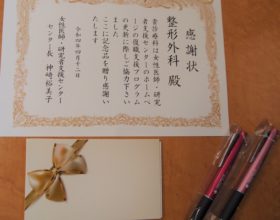 感謝状
整形外科 殿
貴診療科は女性医師・研究
者支援センターのホームペ
ージの復職支援プログラム
の更新に際しご協力下さい
ました
ここに記念品を贈り感謝い
たします
令和四年四月十二日
女性医師・研究者支援センター
センター長 神崎裕美子